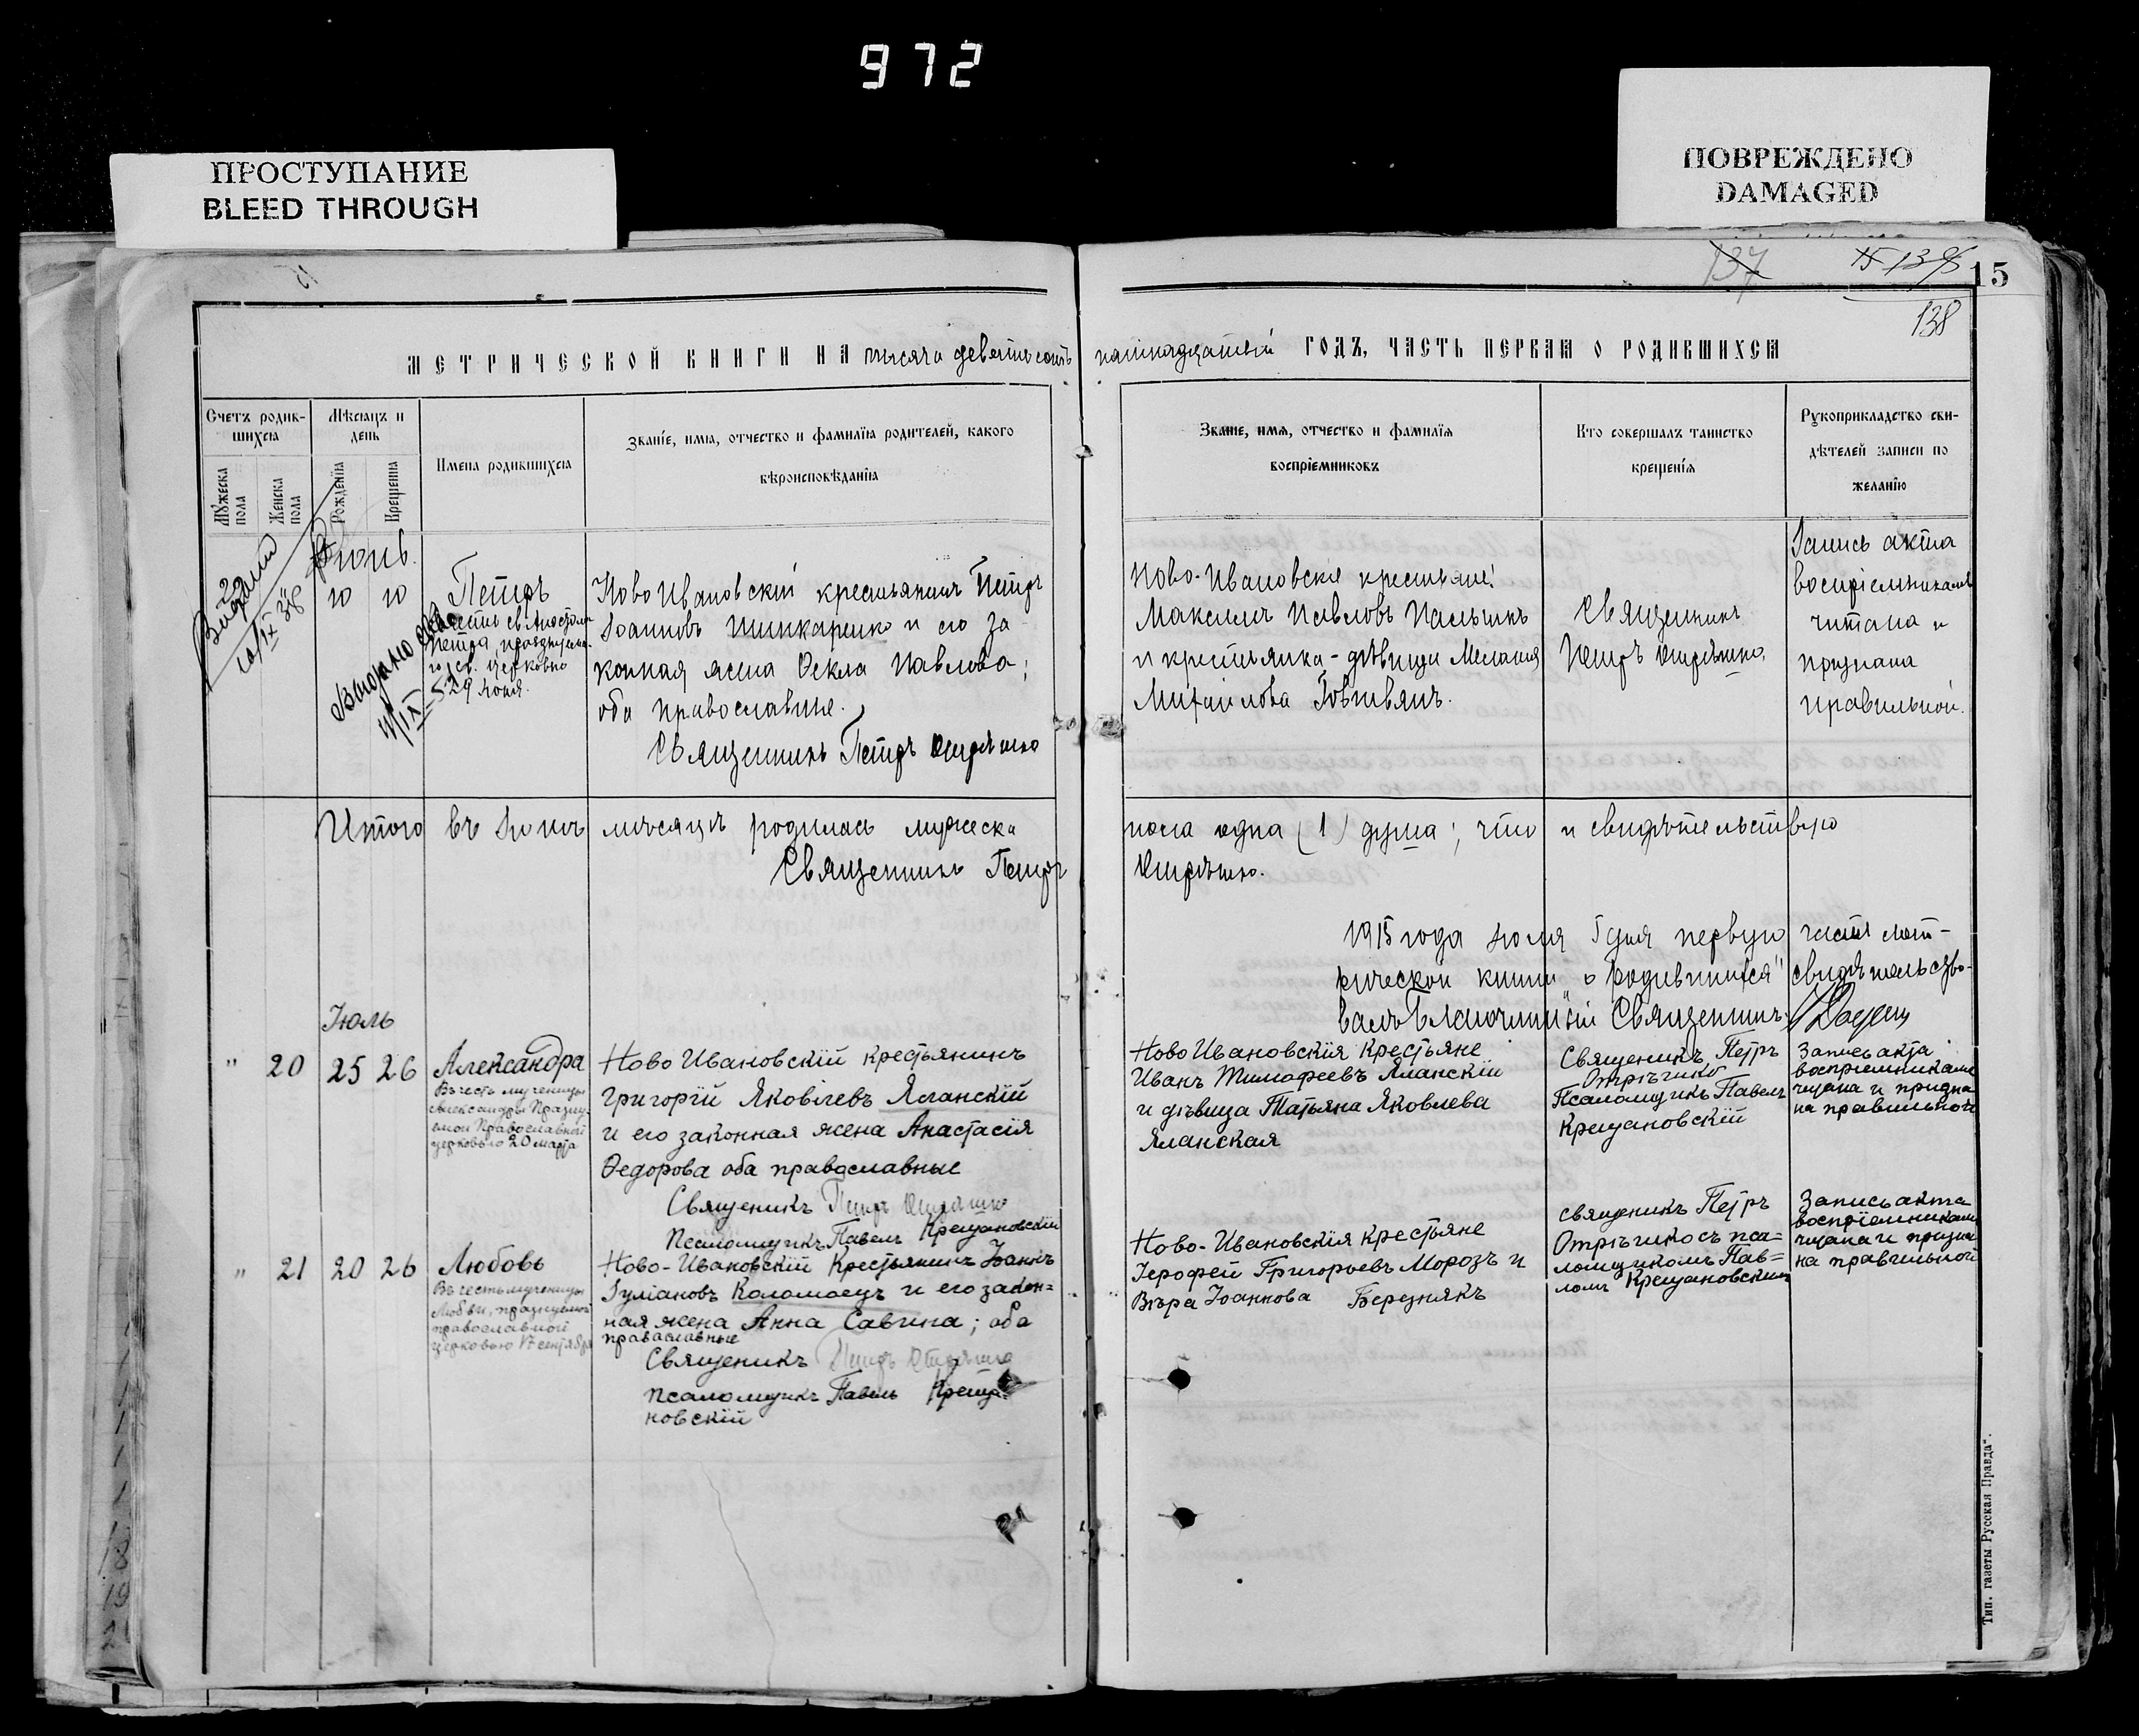 972
ПРОСТУПАНИЕ
BLEED THROUGH
ПОВРЕЖДЕНО
DAMAGED
137
15
138
МЕТРИЧЕСКОЙ КНИГИ НА тысяча девятьсотъ пятнадцатый ГОДЪ, ЧАСТЬ ПЕРВАЯ О РОДИВШИХСЯ
Счетъ родив-
шихся
Мѣсяцъ и
день
Мужеска
пола
Женска
пола
Рожденія
Крещенія
Имена родившихся
Званіе, имя, отчество и фамилія родителей, какого
вѣроисповѣданія
Званіе, имя, отчество и фамилія
воспріемниковъ
Кто совершалъ таинство
крещенія
Рукоприкладство сви-
дѣтелей записи по
желанію
22
10/IX 38
Іюнь
10 10
Выдано
11/IX-53
Петръ
св. Апостола
Петра,
св. церковію
29 Іюня.
Ново Ивановскій крестьянинъ Петръ
Іоанновъ Шинкаренко и его за-
конная жена Ѳекла Павлова;
оба православные.
Священникъ Петръ Отрѣшко
Ново-Ивановскіе крестьяне:
Максимъ Павловъ
и крестьянка-дѣвица Меланія
Михайлова
Священникъ
Петръ Отрѣшко
Запись акта
воспріемникамъ
читана и
признана
правильной.
Итого въ Іюнѣ мѣсяцѣ родилась мужеска пола одна (1) душа; что и свидѣтельствую
Священникъ Петръ Отрѣшко.
1915 года Іюля дня первую часть мет-
рической книги "о родившихся" свидѣтельство-
валъ Благочинный Священникъ
Іюль
" 20 25 26
Александра
Въ честь мученицы
Александры Празну-
емой Православной
церковью 20 марта
Ново Ивановскій крестьянинъ
Григорій Яковлевъ Яланскій
и его законная жена Анастасія
Ѳедорова оба православные
Священикъ Петръ Отрѣшко
Псаломщикъ Павелъ Крещановскій
Ново Ивановскія крестьяне
Иванъ Тимофеевъ Яланскій
и дѣвица Татьяна Яковлева
Яланская
Священикъ Петръ
Отрѣшко
Псаломщикъ Павелъ
Крещановскій
Запись акта
воспріемниками
читана и призна
на правильной
" 21 20 26
Любовь
Въ честь мученицы
Любви, празнуемой
православной
церковью 17 сентября
Ново-Ивановскій Крестьянинъ Іоаннъ
Іуліановъ Коломоецъ и его закон=
ная жена Анна Савина; оба
православные
Священикъ Петръ Отрѣшко
псаломщикъ Павелъ Креща-
новскій
Ново-Ивановскія крестьяне
Іерофей Григорьевъ Морозъ и
Вѣра Іоаннова Березнякъ
священикъ Петръ
Отрѣшко съ пса=
ломщикомъ Пав=
ломъ Крещановскимъ
Запись акта
воспріемниками
читана и призна
на правильной
Тип. газеты Русская Правда".
18
19